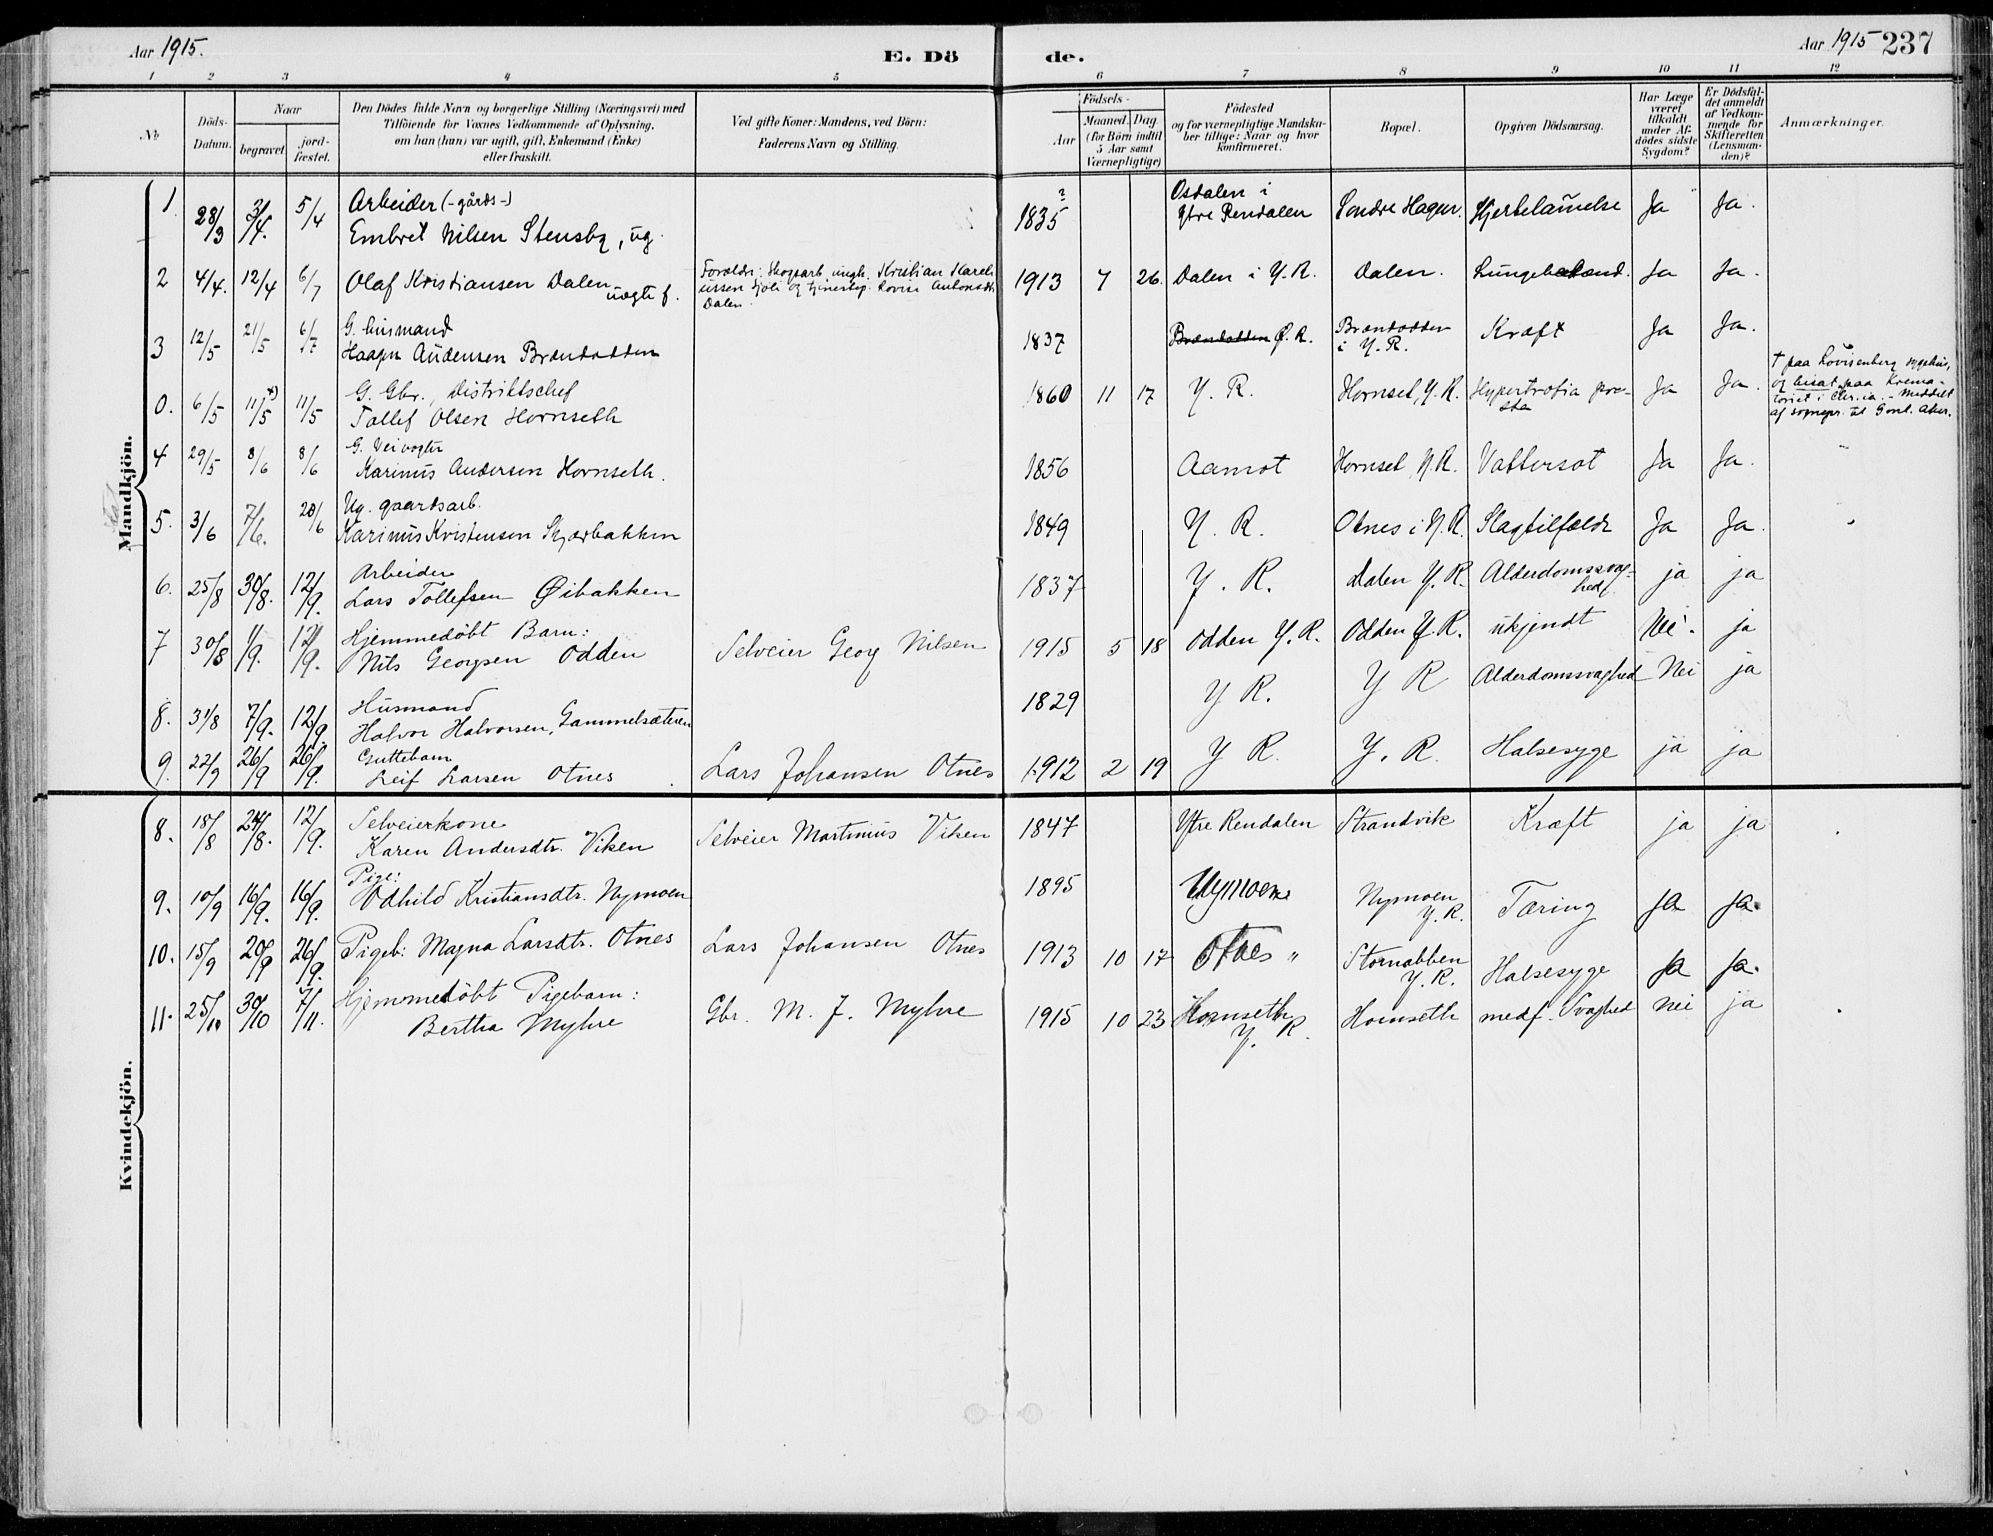 Aar 1915.
E. Dö
de.
Aar 1915
237
1 2 3 4 5 6 7 8 9 10 11 12
No
Döds-
Datum.
Naar
begravet.
jord-
fæstet.
Den Dödes fulde Navn og borgerlige Stilling (Næringsvei) med
Tilföiende for Voxnes Vedkommende af Oplysning,
om han (hun) var ugift, gift, Enkemand (Enke)
eller fraskilt.
Ved gifte Koner: Mandens, ved Börn:
Faderens Navn og Stilling.
Födsels-
Aar
Maaned.
Dag.
(for Börn indtil
5 Aar samt
Værnepligtige)
Födested
og for værnepligtige Mandska-
ber tillige: Naar og hvor
konfirmeret.
Bopæl.
Opgiven Dödsaarsag.
Har Læge
været
tilkaldt
under Af-
dödes sidste
Sygdom?
Er Dödsfal-
det anmeldt
af Vedkom-
mende for
Skifteretten
(Lensman-
den)?
Anmærkninger.
Mandkjön.
Arbeider (-gårds-) Osdalen i
1 28/3 3/4. 5/4 Embret Nilsen Stensby, ug. 1835 ? Ytre Rendalen Söndre Hagen. Hjertelamelse Ja Ja.
2 4/4. 12/4 6/7 Olaf Kristiansen Dalen uegte f. Foreldre: Skogsarb. ungk. Kristian Kareli
ussen Sjöli og tjenestep. Lovise Antonsdtr.
Dalen 1913 7 26 Dalen i Y. R. Dalen. Lungebetænd. Ja Ja.
G. husmand Brændodden
3 12/5 21/5 6/7 Haagen Audensen Brændodden 1837 Brændodden Ø. R. i Y. R. Kræft Ja Ja.
G. Gbr., Distriktschef
0. 6/5 11/5 +) 11/5 Tollef Olsen Hornseth 1860 11 17 Y. R. Hornset, Y. R. Hypertrofia pro-
sta Ja Ja. † paa Lovisenberg sygehus,
og bisat paa Krema-
toriet i Chr.ia. - Meddelt
af sognepr. til Gml. Aker.
G. Veivogter
4 29/5 8/6 8/6 Karinus Andersen Hornseth. 1856 Aamot Hornset, Y. R. Vattersot Ja Ja.
Ug. gaardsarb.
5. 3/6 7/6. 20/6 Karinus Kristensen Skjærbakken 1849 Y. R. Otnes i Y. R. Slagtilfælde Ja Ja.
Arbeider
6. 25/8 30/8. 12/9. Lars Tollefsen Øibakken 1837 Y. R. Dalen Y. R. Alderdomssvag-
hed ja ja
Hjemmedøbt Barn:
7 30/8 1/9. 12/9. Nils Georgsen Odden Selveier Georg Nilsen 1915 5 18 Odden Y. R. Odden Y. R. ukjendt Nei. ja
Husmand
8. 31/8 7/9. 12/9. Halvor Halvorsen, Gammelsæteren 1829 Y R. Y R Alderdomssvaghed Nei ja
Guttebarn
9. 22/9 26/9 26/9. Leif Larsen Otnes Lars Johansen Otnes 1912 2 19 Y R. Y. R. Halsesyge ja ja
Kvindekjön.
Selveierkone
8. 18/8 24/8. 12/9. Karen Andersdtr. Viken Selveier Martinius Viken 1847 Ytre Rendalen Strandvik Kræft ja ja
Pige:
9. 10/9 16/9. 16/9. Odhild Kristiansdtr. Nymoen 1895 Nymoen Nymoen
Y. R. Tæring Ja Ja.
10. 15/9 20/9 26/9. Pigeb: Magna Larsdtr. Otnes Lars Johansen Otnes 1913 10 17 Otnes " Stornabben
Y. R. Halsesyge Ja Ja.
Hjemmedøbt Pigebarn:
11. 25/10 30/10 7/11. Bertha Myhre Gbr. M. J. Myhre 1915 10 23 Hornseth
Y. R. Hornseth medf. Svaghed Nei ja